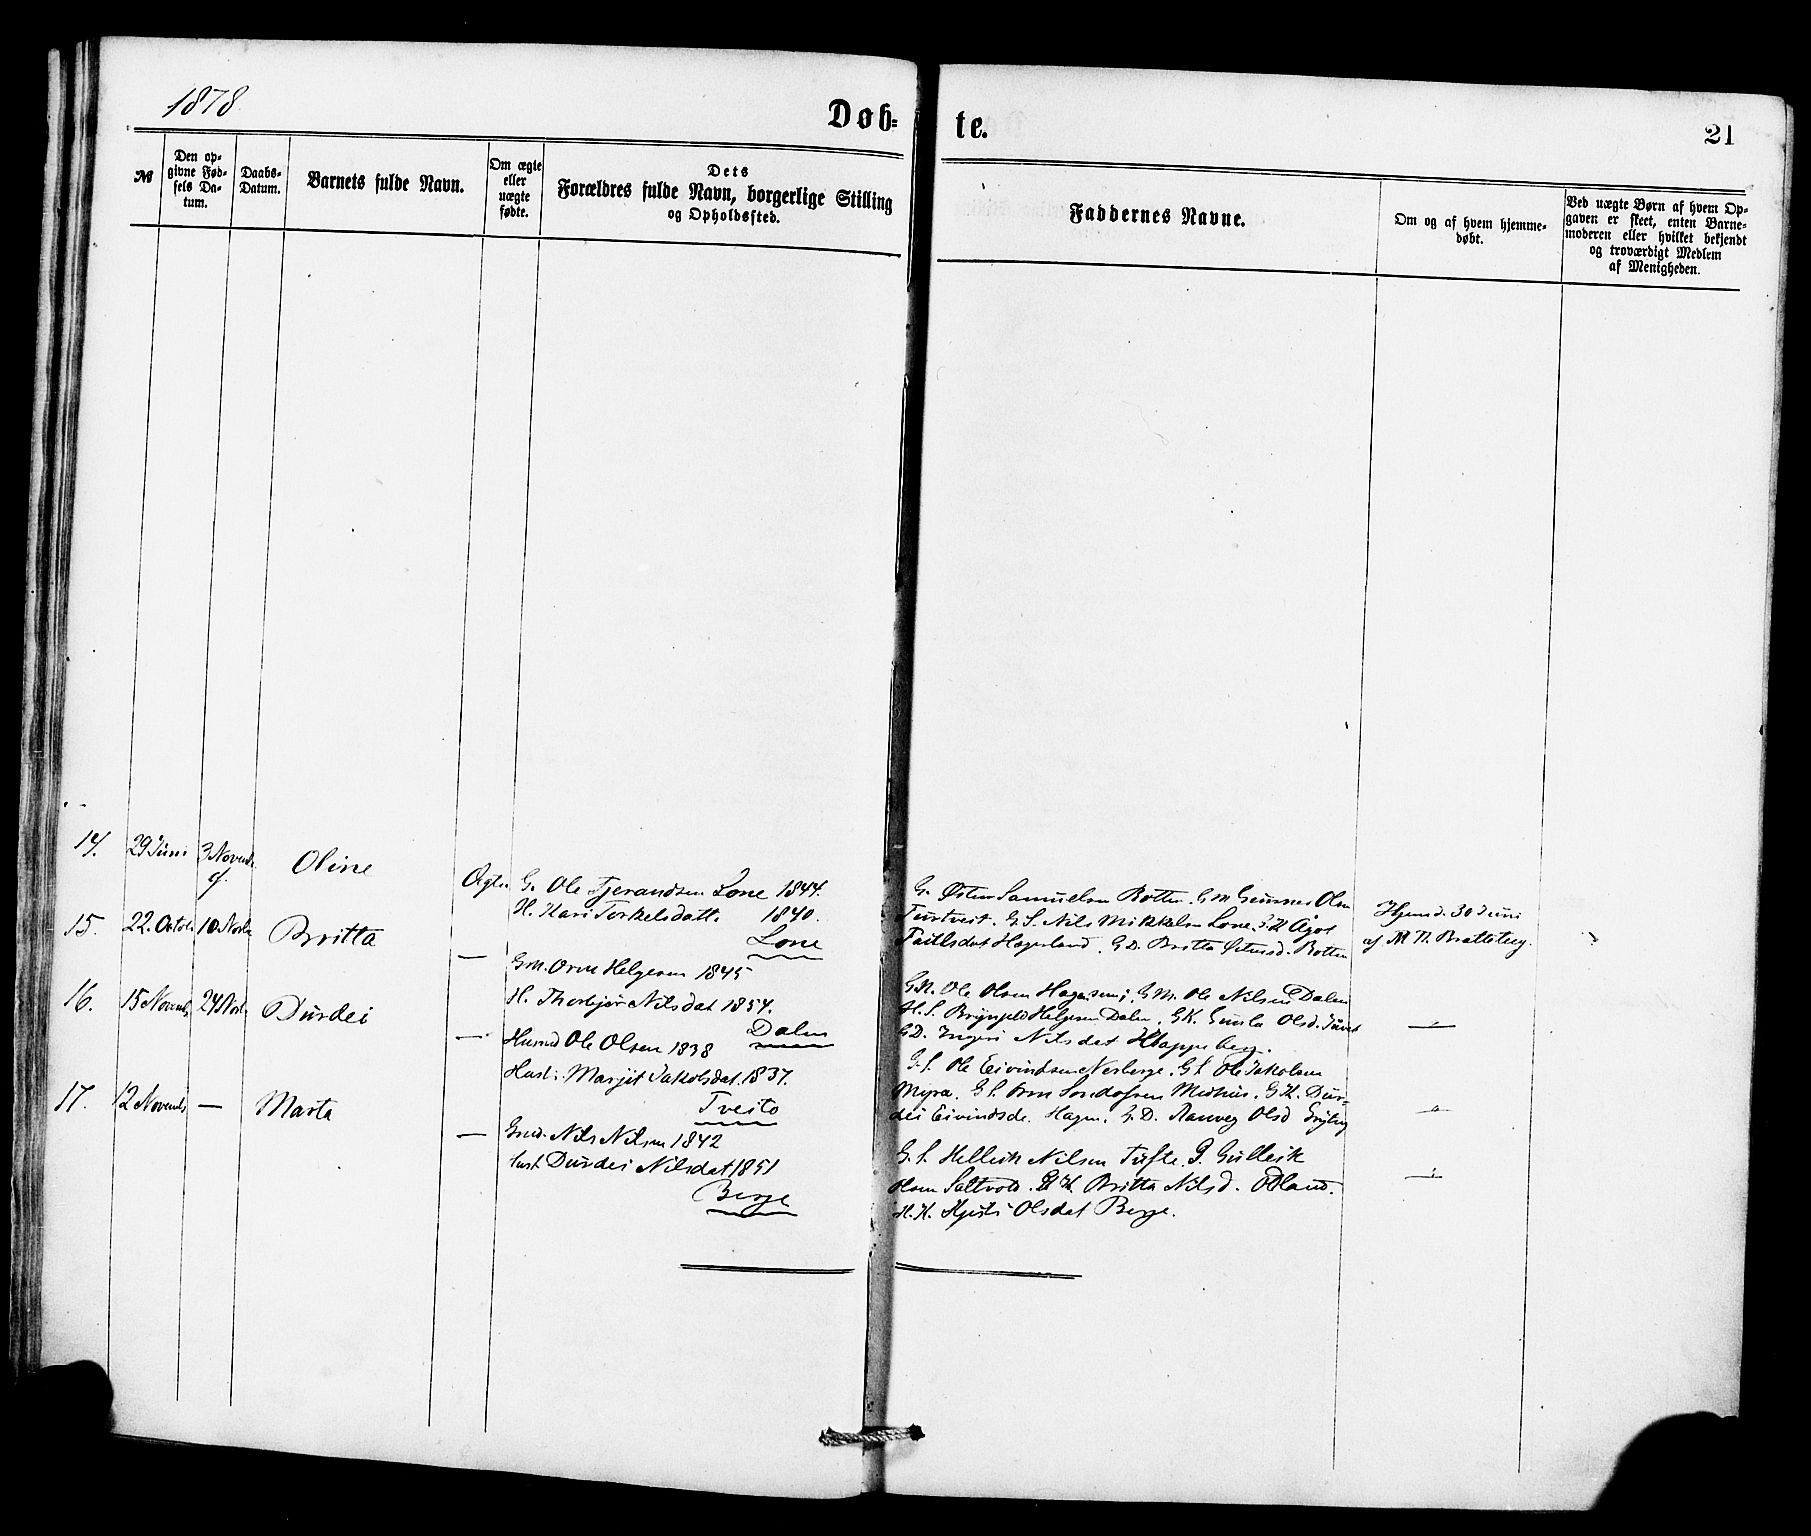 1878
Døb-
te.
21
№
Den op-
givne Fød-
sels Da-
tum.
Daabs-
Datum.
Barnets fulde Navn.
Om ægte
eller
uægte
fødte.
Dets
Forældres fulde Navn, borgerlige Stilling
og Opholdssted.
Faddernes Navne.
Om og af hvem hjemme-
døbt.
Ved uægte Børn af hvem Op-
gaven er skeet, enten Barne-
moderen eller hvilket bekjendt
og troværdigt Medlem
af Menigheden.
14. 29 Juni 3 Novemb. Oline Ægte. G. Ole Tjerandsen Lone 1844.
H. Kari Torkelsdatt. 1840.
Lone
G. Østen Samuelsen Rotten. G.M. Gunnar Olsen
Turtveit. G.S. Nils Mikkelsen Lone. Agot
Taitlsdat Hageland. G.D. Britta Østensd. Rotten
Hjemd. 30 Juni
af M N. Bratteteig.
15. 22. October 10 Novbr Britta — Gm. Orm Helgesen 1845
H. Thorbjør Nilsdat 1854.
Dalen
Gm. Ole Olsen Hagen, Gm. Ole Nilsen Dalen
H.S. Brynjuld Helgesen Dalen. GK. Gunla Olsd.
GD. Ingeri Nilsdat Klappe berg.
—
16. 15 Novemb 24 Nov. Durdei — Husmd Ole Olsen 1838
Hust: Marjit Jakobsdat. 1837.
Tveito
G.S. Ole Eivindsen Nerberge. G.S. Ole Jakobsen
Myra. G.S. Orm Sondresen Midhus. G.K. Dur-
dei Eivindsd. Hagen. G.D. Ranveg Olsd
—
17. 12 Novemb — Marta — Gmd. Nils Nilsen 1842
Hust Durdei Nilsdat 1851
Berge
G.S. Hellek Nilsen Tufte. G. Gullek
Olsen Saltvold. G K. Britta Nilsd. Ødland.
H.K. Kjersti Olsdat Berge.
—